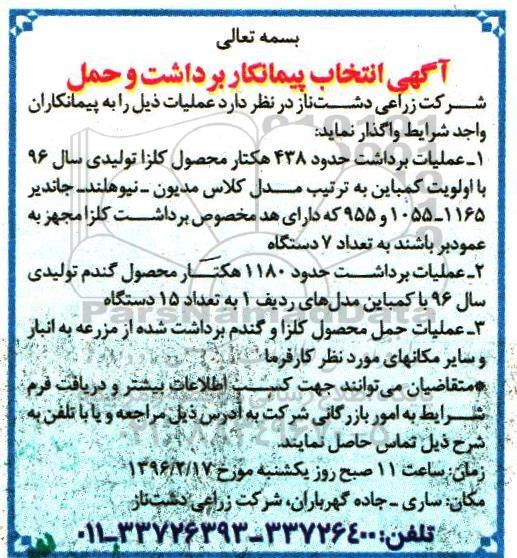 بسمه تعالی
آگهی انتخاب پیمانکار برداشت و حمل
شرکت زراعی دشت‌ناز در نظر دارد عملیات ذیل را به پیمانکاران
واجد شرایط واگذار نماید:
۱ـ عملیات برداشت حدود ۴۳۸ هکتار محصول کلزا تولیدی سال ۹۶
با اولویت کمباین به ترتیب مدل کلاس مدیون ـ نیوهلند ـ جاندیر
۱۱۶۵ـ ۱۰۵۵ و ۹۵۵ که دارای هد مخصوص برداشت کلزا مجهز به
عمودبر باشند به تعداد ۷ دستگاه
۲ـ عملیات برداشت حدود ۱۱۸۰ هکتار محصول گندم تولیدی
سال ۹۶ با کمباین مدل‌های ردیف ۱ به تعداد ۱۵ دستگاه
۳ـ عملیات حمل محصول کلزا و گندم برداشت شده از مزرعه به انبار
و سایر مکانهای مورد نظر کارفرما
*متقاضیان می‌توانند جهت کسب اطلاعات بیشتر و دریافت فرم
شرایط به امور بازرگانی شرکت به آدرس ذیل مراجعه و یا با تلفن به
شرح ذیل تماس حاصل نمایند.
زمان: ساعت ۱۱ صبح روز یکشنبه مورخ ۱۳۹۶/۲/۱۷
مکان: ساری ـ جاده گهرباران، شرکت زراعی دشت‌ناز
تلفن: ۳۳۷۲۶۴۰۰ـ۳۳۷۲۶۳۹۳ـ۰۱۱
ParsNamadData